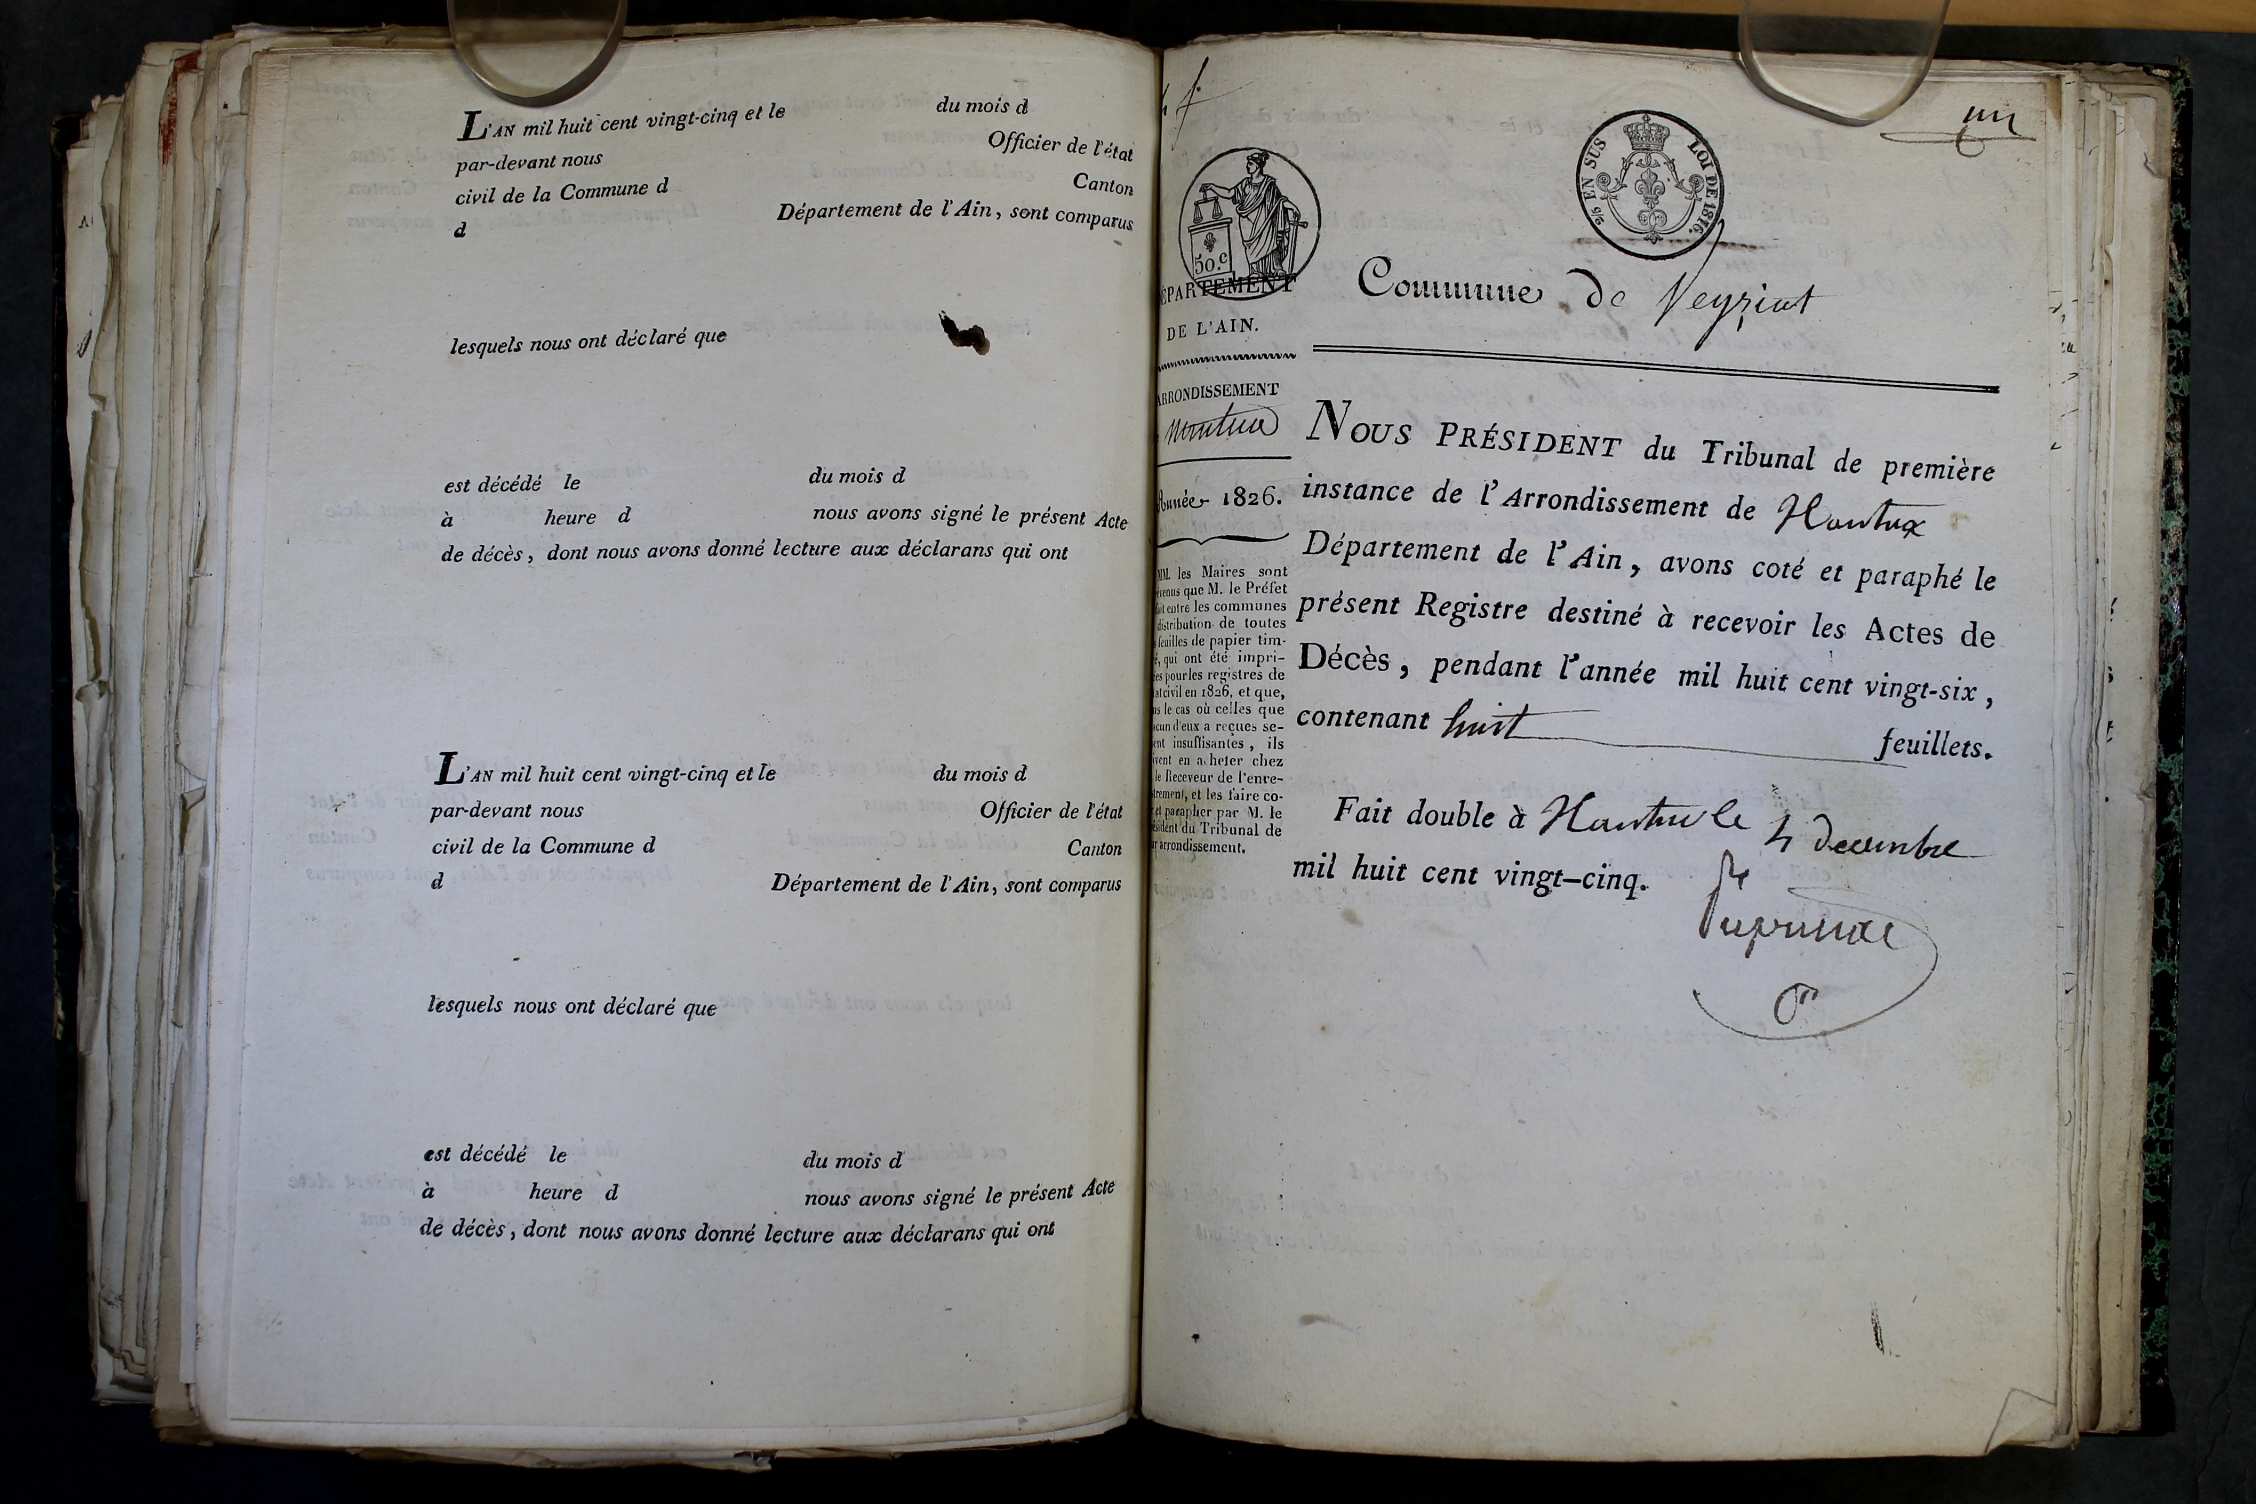 L'AN mil huit cent vingt-cinq et le du mois d
par-devant nous Officier de l'état
civil de la Commune d Canton
d Département de l'Ain, sont comparus
lesquels nous ont déclaré que
est décédé le du mois d
à heure d nous avons signé le présent Acte
de décès, dont nous avons donné lecture aux déclarans qui ont
L'AN mil huit cent vingt-cinq et le du mois d
par-devant nous Officier de l'état
civil de la Commune d Canton
d Département de l'Ain, sont comparus
lesquels nous ont déclaré que
est décédé le du mois d
à heure d nous avons signé le présent Acte
de décès, dont nous avons donné lecture aux déclarans qui ont
un
50.c
2/5 EN SUS LOI DE 1816.
DÉPARTEMENT
DE L'AIN.
ARRONDISSEMENT
Nantua
Année 1826.
MM. les Maires sont
que M. le Préfet
entre les communes
distribution de toutes
feuilles de papier tim-
qui ont été impri-
pour les registres de
civil en 1826, et que,
le cas où celles que
d'eux a reçues se-
insuffisantes, ils
en acheter chez
le Receveur de l'enre-
et les faire co-
et parapher par M. le
du Tribunal de
arrondissement.
Commune de Veyziat
NOUS PRÉSIDENT du Tribunal de première
instance de l'Arrondissement de Nantua
Département de l'Ain, avons coté et paraphé le
présent Registre destiné à recevoir les Actes de
Décès, pendant l'année mil huit cent vingt-six,
contenant huit feuillets.
Fait double à Nantua le 4 decembre
mil huit cent vingt-cinq.